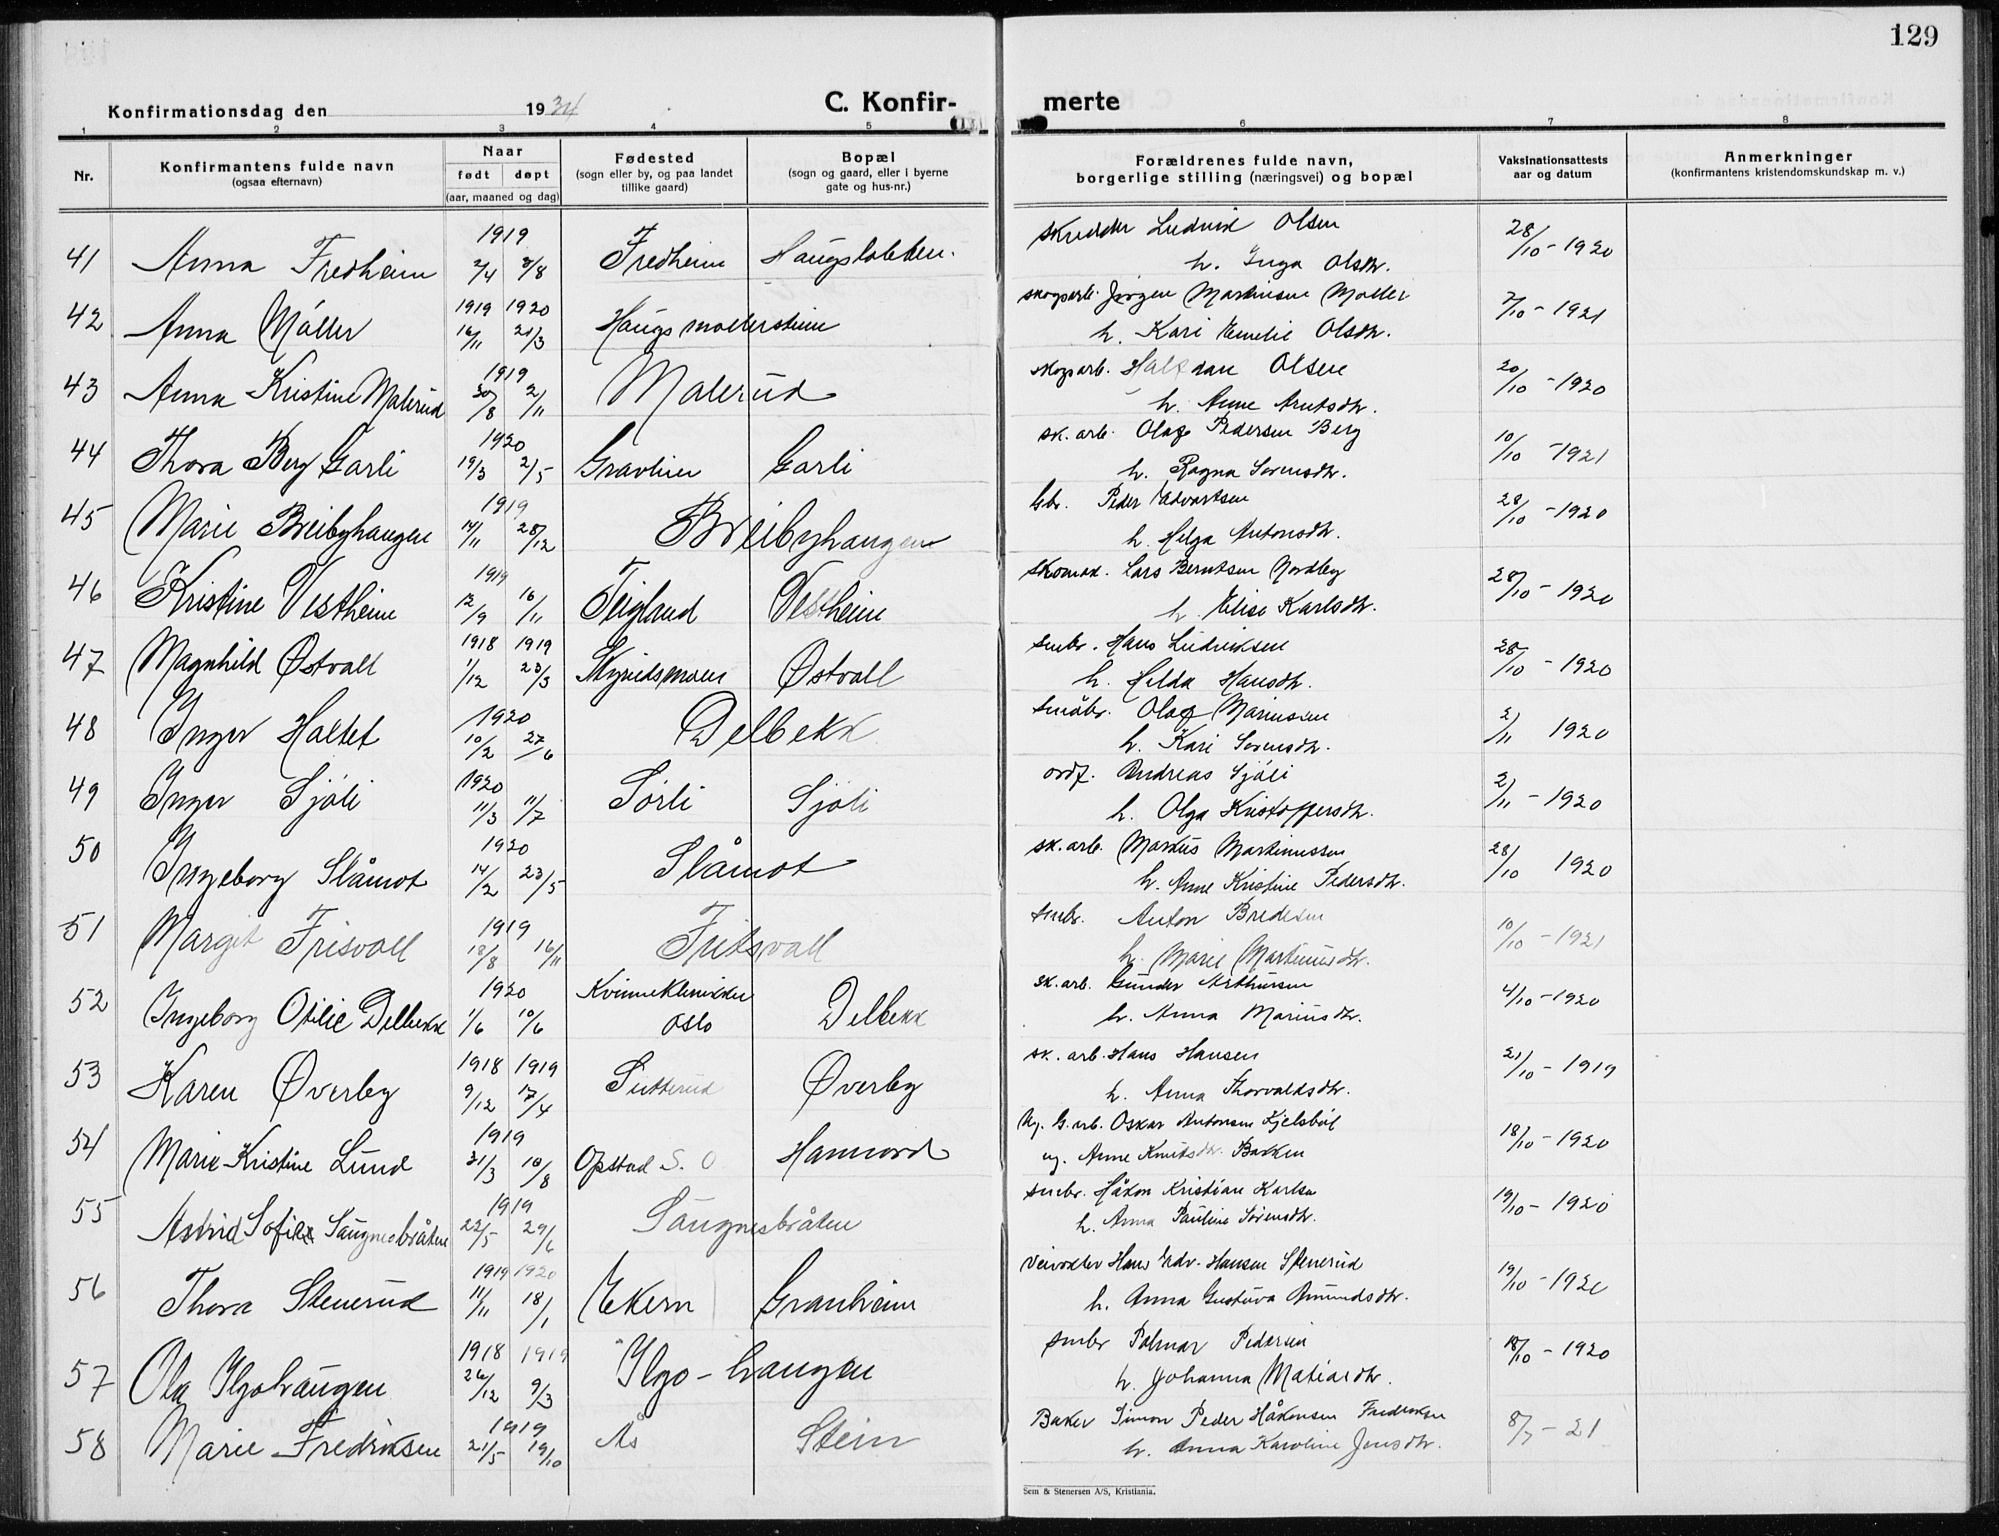 129
Konfirmationsdag den 1934
C. Konfir- merte
1 2 3 4 5 6 7 8
Nr.
Konfirmantens fulde navn
(ogsaa efternavn)
Naar
født døpt
(aar, maaned og dag)
Fødested
(sogn eller by, og paa landet
tillike gaard)
Bopæl
(sogn og gaard, eller i byerne
gate og hus-nr.)
Forældrenes fulde navn,
borgerlige stilling (næringsvei) og bopæl
Vaksinationsattests
aar og datum
Anmerkninger
(konfirmantens kristendomskundskap m. v.)
1919 skredder Ludvik Olsen
41 Anna Fredheim 2/4 3/8 Fredheim Haugslökken. 28/10 - 1920
h. Inga Olsdtr.
1919 1920 skogsarb. Jörgen Martinsen Moller
42 Anna Möller 16/11 21/3 Haugsmollersteine 7/10 - 1921
h. Kari Emelie Olsdtr.
1919 skogsarb. Halfdan Olsen
43 Anna Kristine Malerud 30/8 2/11 Malerud 20/10 - 1920
h. Anne
1920 sk. arb. Olaf Pedersen Berg
44 Thora Berg Garli 19/3 2/5 Gravlien Garli 10/10 - 1921
h. Ragna Sorensdtr.
1919 Gbr. Peder Edvartsen
45 Marie Breibyhaugen 14/11 28/12 Breibyhaugen 28/10 - 1920
h. Helga Antonsdtr.
1919 Skomak. Lars Berntsen Nordby
46 Kristine Vestheim 12/9 16/11 Teigland Vestheim 28/10 - 1920
h. Elise Karlsdtr.
1918 1919 smbr. Hans Ludviksen
47 Magnhild Østvoll 1/12 23/3 Østvoll 28/10 - 1920
h. Helda Hansdtr.
1920 småbr. Olaf Mariussen
48 Inger Haltet 10/2 27/6 Delbekk 2/11 1920
h. Kari Sorensdtr.
1920 ordf. Andreas Sjöli
49 Inger Sjöli 11/3 11/7 Sorli Sjöli 2/11 - 1920
h. Olga Kristoffersdtr.
1920 sk. arb. Martinussen
50 Ingeborg Slåmot 14/2 23/5 Slåmot 28/10 1920
h. Anne Kristine Pedersdtr.
1919 smbr. Anton Bredesen
51 Margit Frisvoll 18/8 16/11 Fritsvoll 10/10 - 1921
h. Marie Martinusdtr.
1920 Kvinneklinikken sk. arb. Gunder Arthursen
52 Ingeborg Otilie Delbekk 1/6 10/6 Oslo Delbekk 4/10 - 1920
h. Anna Mariusdtr.
1918 1919 sk. arb. Hans Hansen
53 Karen Øverby 9/12 17/4 Sutterud Øverby 21/10 - 1919
h. Anna Thorvaldsdtr.
1919 Ug. G. arb. Oskar Antonsen Kjelsböl
54 Marie Kristine Lund 31/3 10/8 Opstad S. O. Hamnord 18/10 - 1920
ug. Anne Knutsdtr. Bakken
1919 smbr. Håkon Kristian Karlsen
55 Astrid Sofie Saugnesbråten 22/5 29/6 Saugnesbråten 19/10 - 1920
h. Anna Pauline Sörensdtr.
1919 1920 Veivokter Hans Edv. Hansen Stenerud
56 Thora Stenerud 11/11 18/1 Ekern Granheim 19/10 - 1920
h. Anna Gustava Amundsdtr.
1918 1919 smbr Palmar Pedersen
57 Ola Ilgohaugen 26/12 9/3 Ilgo-haugen 18/10 - 1920
h. Johanna Matiasdtr.
1919 Baker Simon Peder Håkonsen Fredriksen
58 Marie Fredriksen 21/5 19/10 Ås Stein 8/7 - 21
h. Anna Karoline Jensdtr.
Sem & Stenersen A/S, Kristiania.